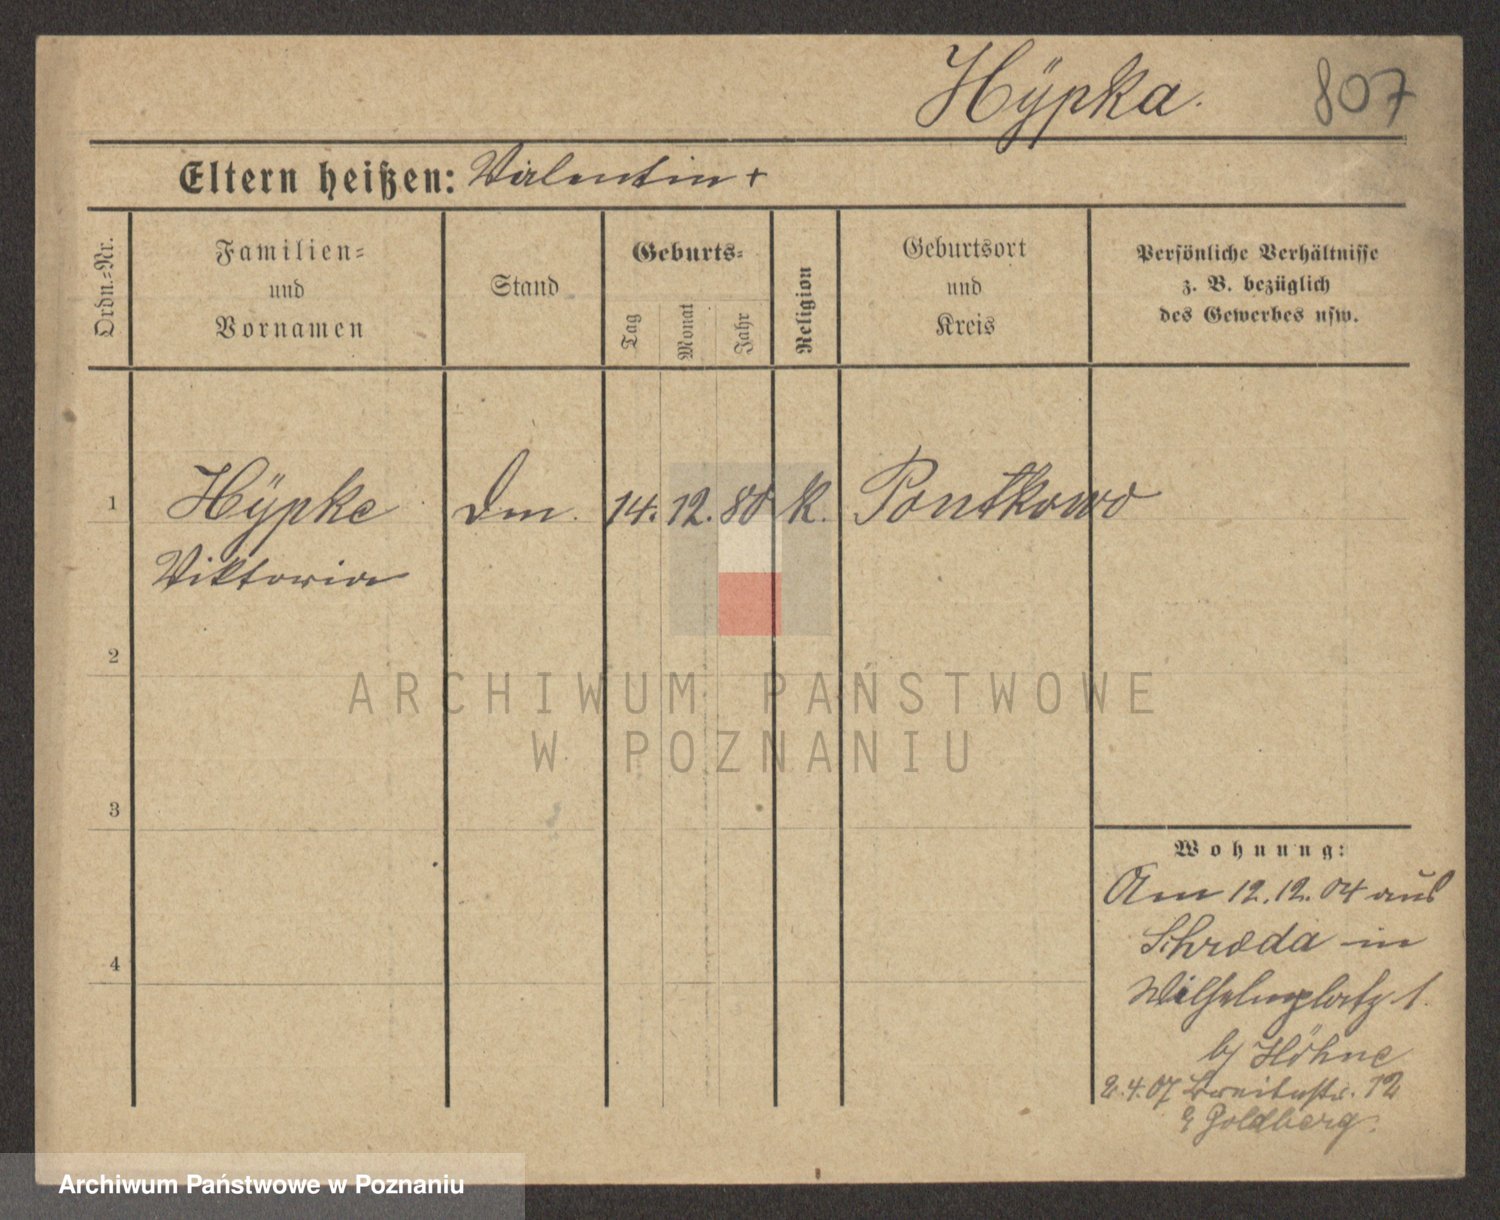 Hÿpka. 807
Eltern heißen: Valentin +
Ordn.-Nr.
Familien-
und
Vornamen
Stand
Geburts-
Tag
Monat
Jahr
Religion
Geburtsort
und
Kreis
Persönliche Verhältnisse
z. B. bezüglich
des Gewerbes usw.
1 Hÿpke Dm. 14. 12. 80 k. Pontkowo
Viktoria
2
3
4
Wohnung:
Am 12.12.04 aus
Schroda in
Wilhelmplatz 1.
b/ Höhne
2.4.07 Breitestr. 12
Goldberg.
ARCHIWUM PAŃSTWOWE
W POZNANIU
Archiwum Państwowe w Poznaniu